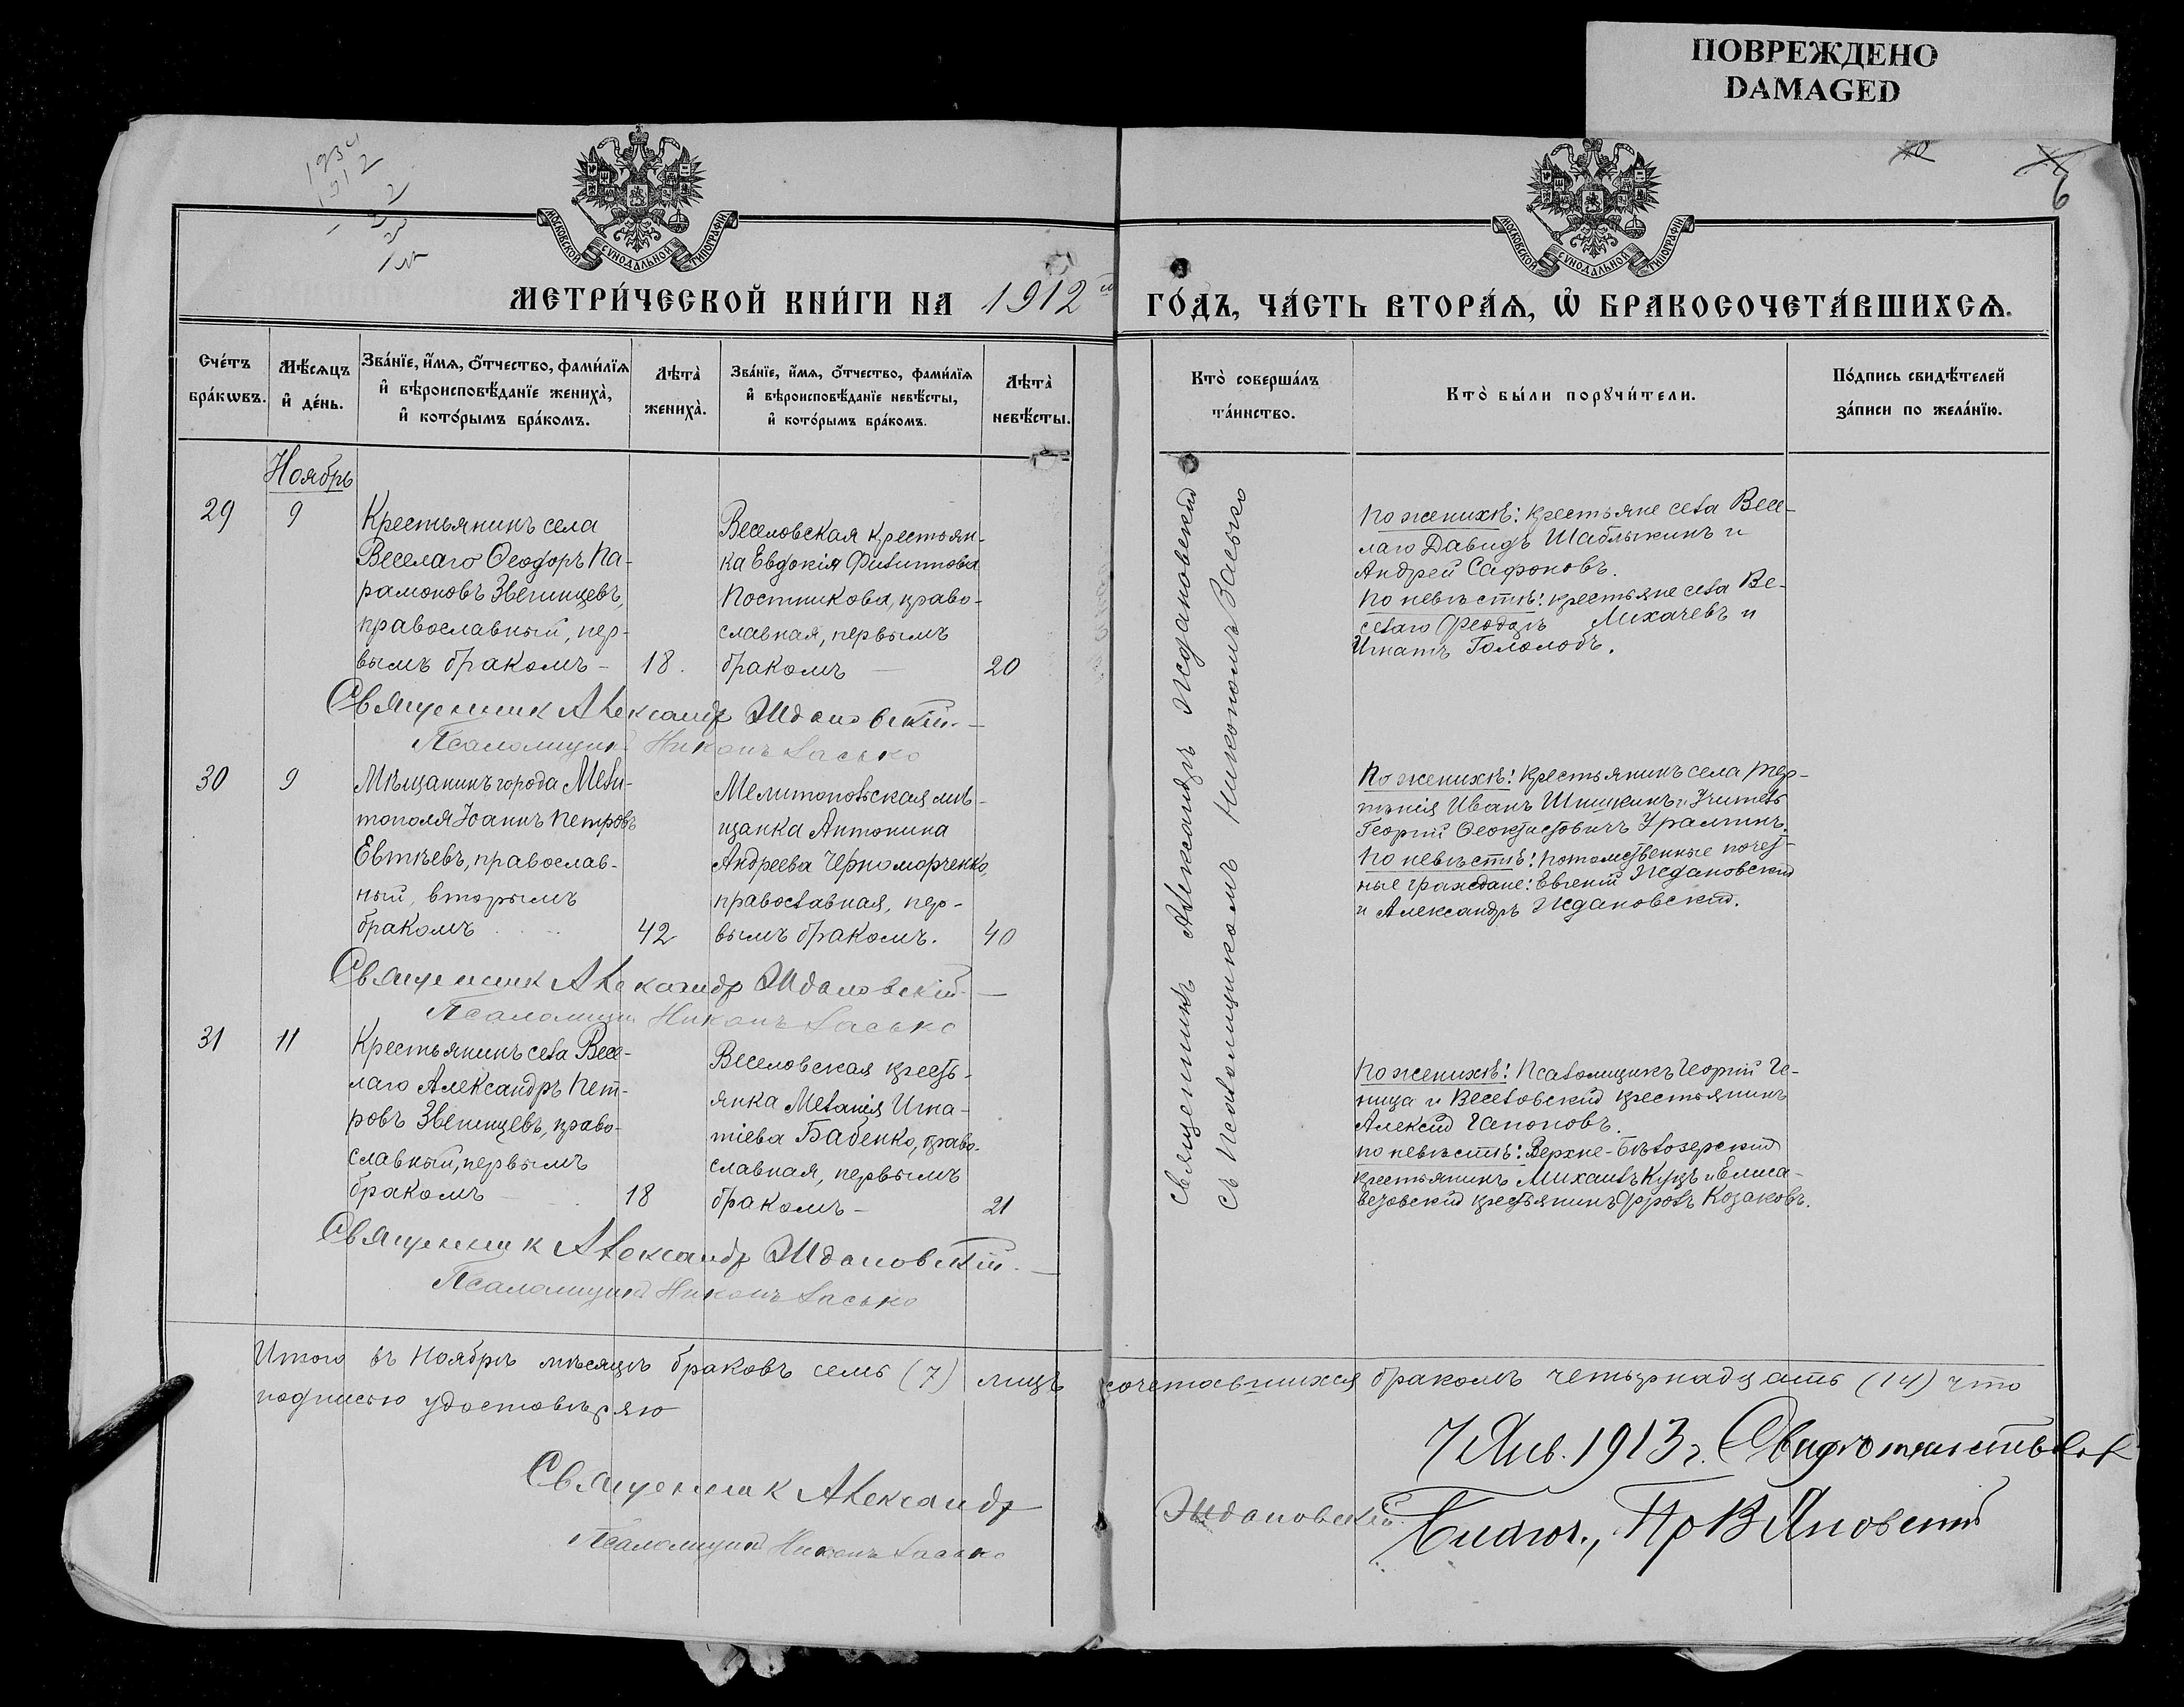 ПОВРЕЖДЕНО
DAMAGED
1912
6
МОСКОВСКОЙ СѴНОДАЛЬНОЙ ТИПОГРАФІИ
МОСКОВСКОЙ СѴНОДАЛЬНОЙ ТИПОГРАФІИ
МЕТРИ́ЧЕСКОЙ КНИ́ГИ НА 1912 й ГО́ДЪ, ЧА́СТЬ ВТОРА́Ѧ, Ѡ҆ БРАКОСОЧЕТА́ВШИХСѦ.
Сче́тъ
бра́кѡвъ.
Мѣ́сѧцъ
и҆ де́нь.
Зва́нїе, и҆́мѧ, ѻ҆́тчество, фами́лїѧ
и҆ вѣроисповѣ́данїе жениха̀,
и҆ кото́рымъ бра́комъ.
Лѣта̀
жениха̀.
Зва́нїе, и҆́мѧ, ѻ҆́тчество, фами́лїѧ
и҆ вѣроисповѣ́данїе невѣ́сты,
и҆ кото́рымъ бра́комъ.
Лѣта̀
невѣ́сты.
Кто̀ соверша́лъ
та́инство.
Кто̀ бы́ли порꙋчи́тели.
По́дпись свидѣ́телей
за́писи по жела́нїю.
Ноябрь
29
9
Крестьянинъ села
Веселаго Ѳеодоръ Па-
рамоновъ Звегинцевъ,
православный, пер-
вымъ бракомъ –
18.
Веселовская крестьян-
ка Евдокія Филиппова
Постникова, право-
славная, первымъ
бракомъ —
20
По женихѣ: крестьяне села Весе-
лаго Давидъ Шаблыкинъ и
Андрей Сафоновъ.
По невѣстѣ: крестьяне села Ве-
селаго Ѳеодоръ Лихачевъ и
Игнатъ Гололобъ.
Священник Александр Ждановскій. –
Псаломщик Никонъ Засько
30
9
Мѣщанинъ города Мели-
тополя Іоаннъ Петровъ
Евтѣевъ, православ-
ный, вторымъ
бракомъ
42
Мелитопольская мѣ-
щанка Антонина
Андреева Черноморченко,
православная, пер-
вымъ бракомъ.
40
По женихѣ: крестьянинъ села Тер-
пѣнія Иванъ Шишкинъ и Учитель
Георгій Ѳеоктистовичъ
По невѣстѣ: потомственные почет-
ные граждане: Евгеній Ждановскій
и Александръ Ждановскій.
Священник Александр Ждановскій –
Псаломщик Никонъ Засько
31
11
Крестьянинъ села Весе-
лаго Александръ Пет-
ровъ Звегинцевъ, право-
славный, первымъ
бракомъ
18
Веселовская кресть-
янка Меланія Игна-
тіева Бабенко, право-
славная, первымъ
бракомъ –
21
По женихѣ: Псаломщикъ Георгій Ге-
ница и Веселовскій крестьянинъ
Алексій Гапоновъ.
По невѣстѣ: Верхне-Бѣлозерскій
крестьянинъ Михаилъ Куцъ и Елиса-
ветовскій крестьянинъ Фролъ Козаковъ.
Священник Александр Ждановскій. –
Псаломщик Никонъ Засько
Священникъ Александръ Ждановскій
съ Псаломщикомъ Никономъ Засько
Итого въ Ноябрѣ мѣсяцѣ браковъ семь (7) лицъ сочетавшихся бракомъ четырнадцать (14) что
подписью удостовѣряю
Священник Александр Ждановскій.
Псаломщик Никонъ Засько
7 Янв. 1913 г.
Благоч., Пр В Яновскій